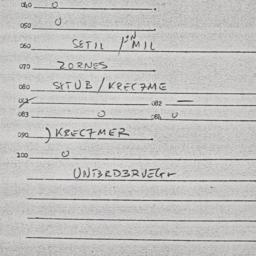 040 0
050 0
060 SETIL / IN MIL
070 ZORNES
080 SKTUB / KRECZME
082 —
083 0 084 0
090 ) KRECZMER
100 0